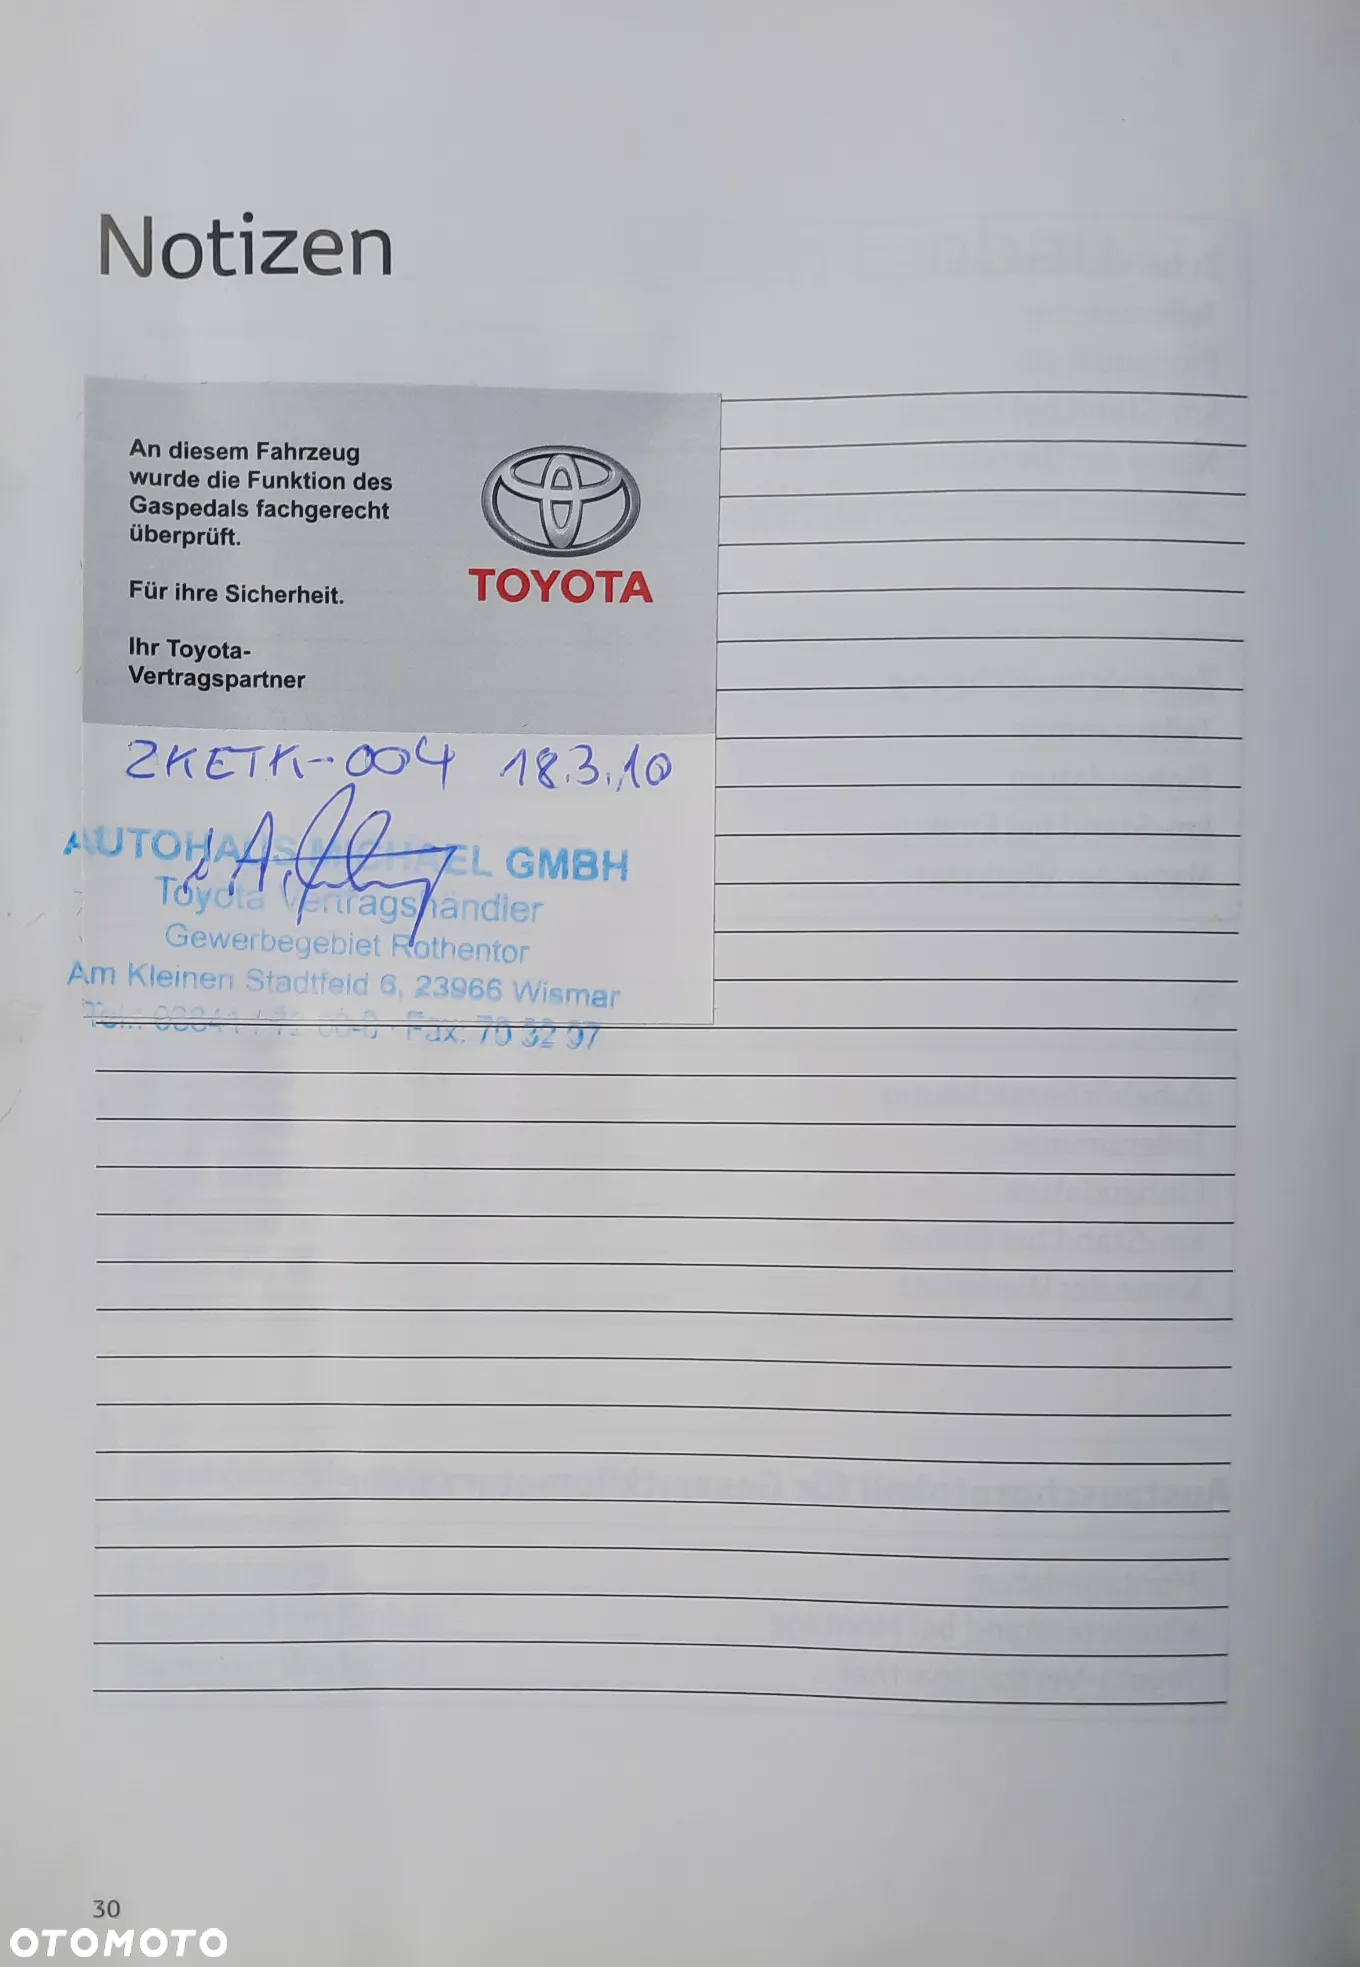 Notizen
An diesem Fahrzeug
wurde die Funktion des
Gaspedals fachgerecht
überprüft.
Für ihre Sicherheit.
Ihr Toyota-
Vertragspartner
TOYOTA
2KETK-004 18.3.10
AUTOHAUS MICHAEL GMBH
Toyota Vertragshändler
Gewerbegebiet Rothentor
Am Kleinen Stadtfeld 6, 23966 Wismar
Tel.: 03841 / Fax: 76 32 97
30
OTOMOTO